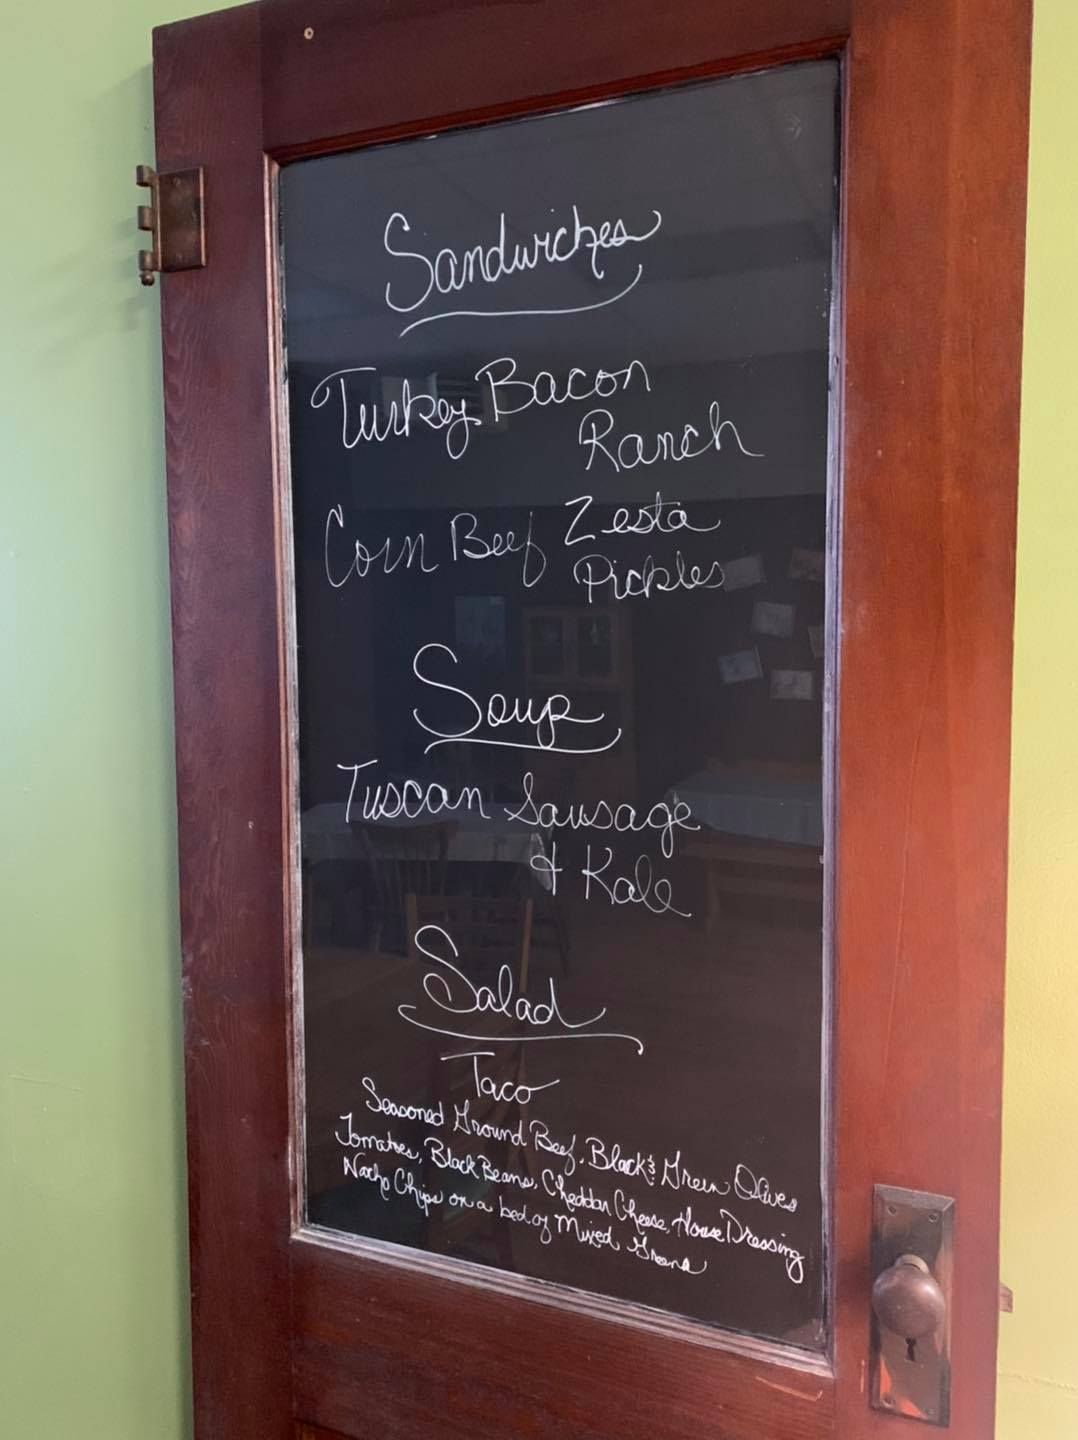 Sandwiches
Turkey Bacon
Ranch
Corn Beef Zesta
Pickles
Soup
Tuscan Sausage
& Kale
Salad
Taco
Seasoned Ground Beef, Black & Green Olives
Tomatoes, Black Beans, Cheddar Cheese, House Dressing
Nacho Chips on a bed of Mixed Greens